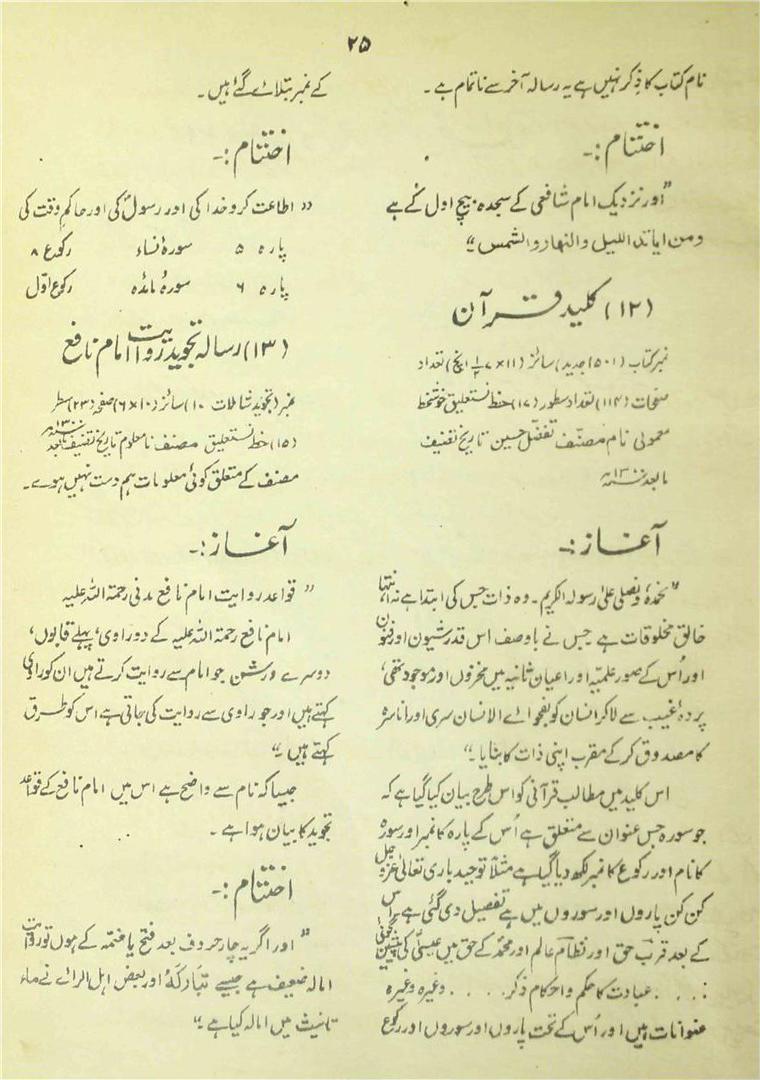 ۲۵
نام کتاب کا ذکر نہیں ہے یہ رسالہ آخر سے ناتمام ہے ۔
اختتام :۔
”اور نزدیک امام شافعی کے سجدہ بیچ اول کے ہے
ومن ایاتہ اللیل والنھار والشمس“
(۱۲) کلید قرآن
نمبر کتاب (۵۰۱ جدید) سائز (۱۱×۷ ۱/۲ انچ) تعداد
صفحات (۱۱۴) تعداد سطور (۱۷) خط نستعلیق خوشخط
معمولی نام مصنف تفضل حسین تاریخ تصنیف
مابعد ۱۳۰۰ھ
آغاز :۔
”نحمدہٗ ونصلی علیٰ رسولہ الکریم ۔ وہ ذات جس کی ابتدا ہے نہ انتہا
خالق مخلوقات ہے جس نے باوصف اس قدر شیون اور فنون
اور اُس کے صور علمیہ اور اعیان ثانیہ میں مخزون اور موجود تھی،
پردہ غیب سے لاکر انسان کو بفحوائے الانسان سری وانا سرہ
کا مصدوق کرکے مقرب اپنی ذات کا بنایا ۔“
اس کلید میں مطالب قرآنی کو اس طرح بیان کیا گیا ہے کہ
جو سورہ جس عنوان سے متعلق ہے اُس کے پارہ کا نمبر اور سورہ
کا نام اور رکوع کا نمبر لکھ دیا گیا ہے مثلاً توحید باری تعالیٰ عزو جل
کن کن پاروں اور سوروں میں ہے تفصیل دی گئی ہے اس
کے بعد قرب حق اور نظام عالم اور محمدؐ کے حق میں عیسیٰؑ کی
. . . . عبادت کا حکم و احکام ذکر . . . . . وغیرہ وغیرہ
عنوانات ہیں اور اُس کے تحت پاروں اور سوروں اور رکوع
کے نمبر بتلائے گئے ہیں ۔
اختتام :۔
”اطاعت کرو خدا کی اور رسولؐ کی اور حاکم وقت کی
پارہ ۵ سورہ نساء رکوع ۸
پارہ ۶ سورہ مائدہ رکوع اوّل
(۱۳) رسالہ تجوید روایت امام نافع
نمبر (تجوید شاملات ۱۰) سائز (۱۰×۶) صفحہ (۲۳) سطر
(۱۵) خط نستعلیق مصنف نامعلوم تاریخ تصنیف مابعد ۱۳۰۰ھ
مصنف کے متعلق کوئی معلومات ہم دست نہیں ہوے ۔
آغاز :۔
”قواعد روایت امام نافع مدنی رحمۃ اللہ علیہ
امام نافع رحمۃ اللہ علیہ کے دو راوی، پہلے قالون،
دوسرے ورشن جو امام سے روایت کرتے ہیں ان کو راوی
کہتے ہیں اور جو راوی سے روایت کی جاتی ہے اس کو طرق
کہتے ہیں ۔“
جیسا کہ نام سے واضح ہے اس میں امام نافع کے قواعد
تجوید کا بیان ہوا ہے ۔
اختتام :۔
”اور اگر یہ چار حروف بعد فتح یا ضمہ کے ہوں تو روایت
امالہ ضعیف ہے جیسے تَبَارَكَهُ اور بعض اہل الرائے نے ہاء
تانیث میں امالہ کیا ہے ۔“